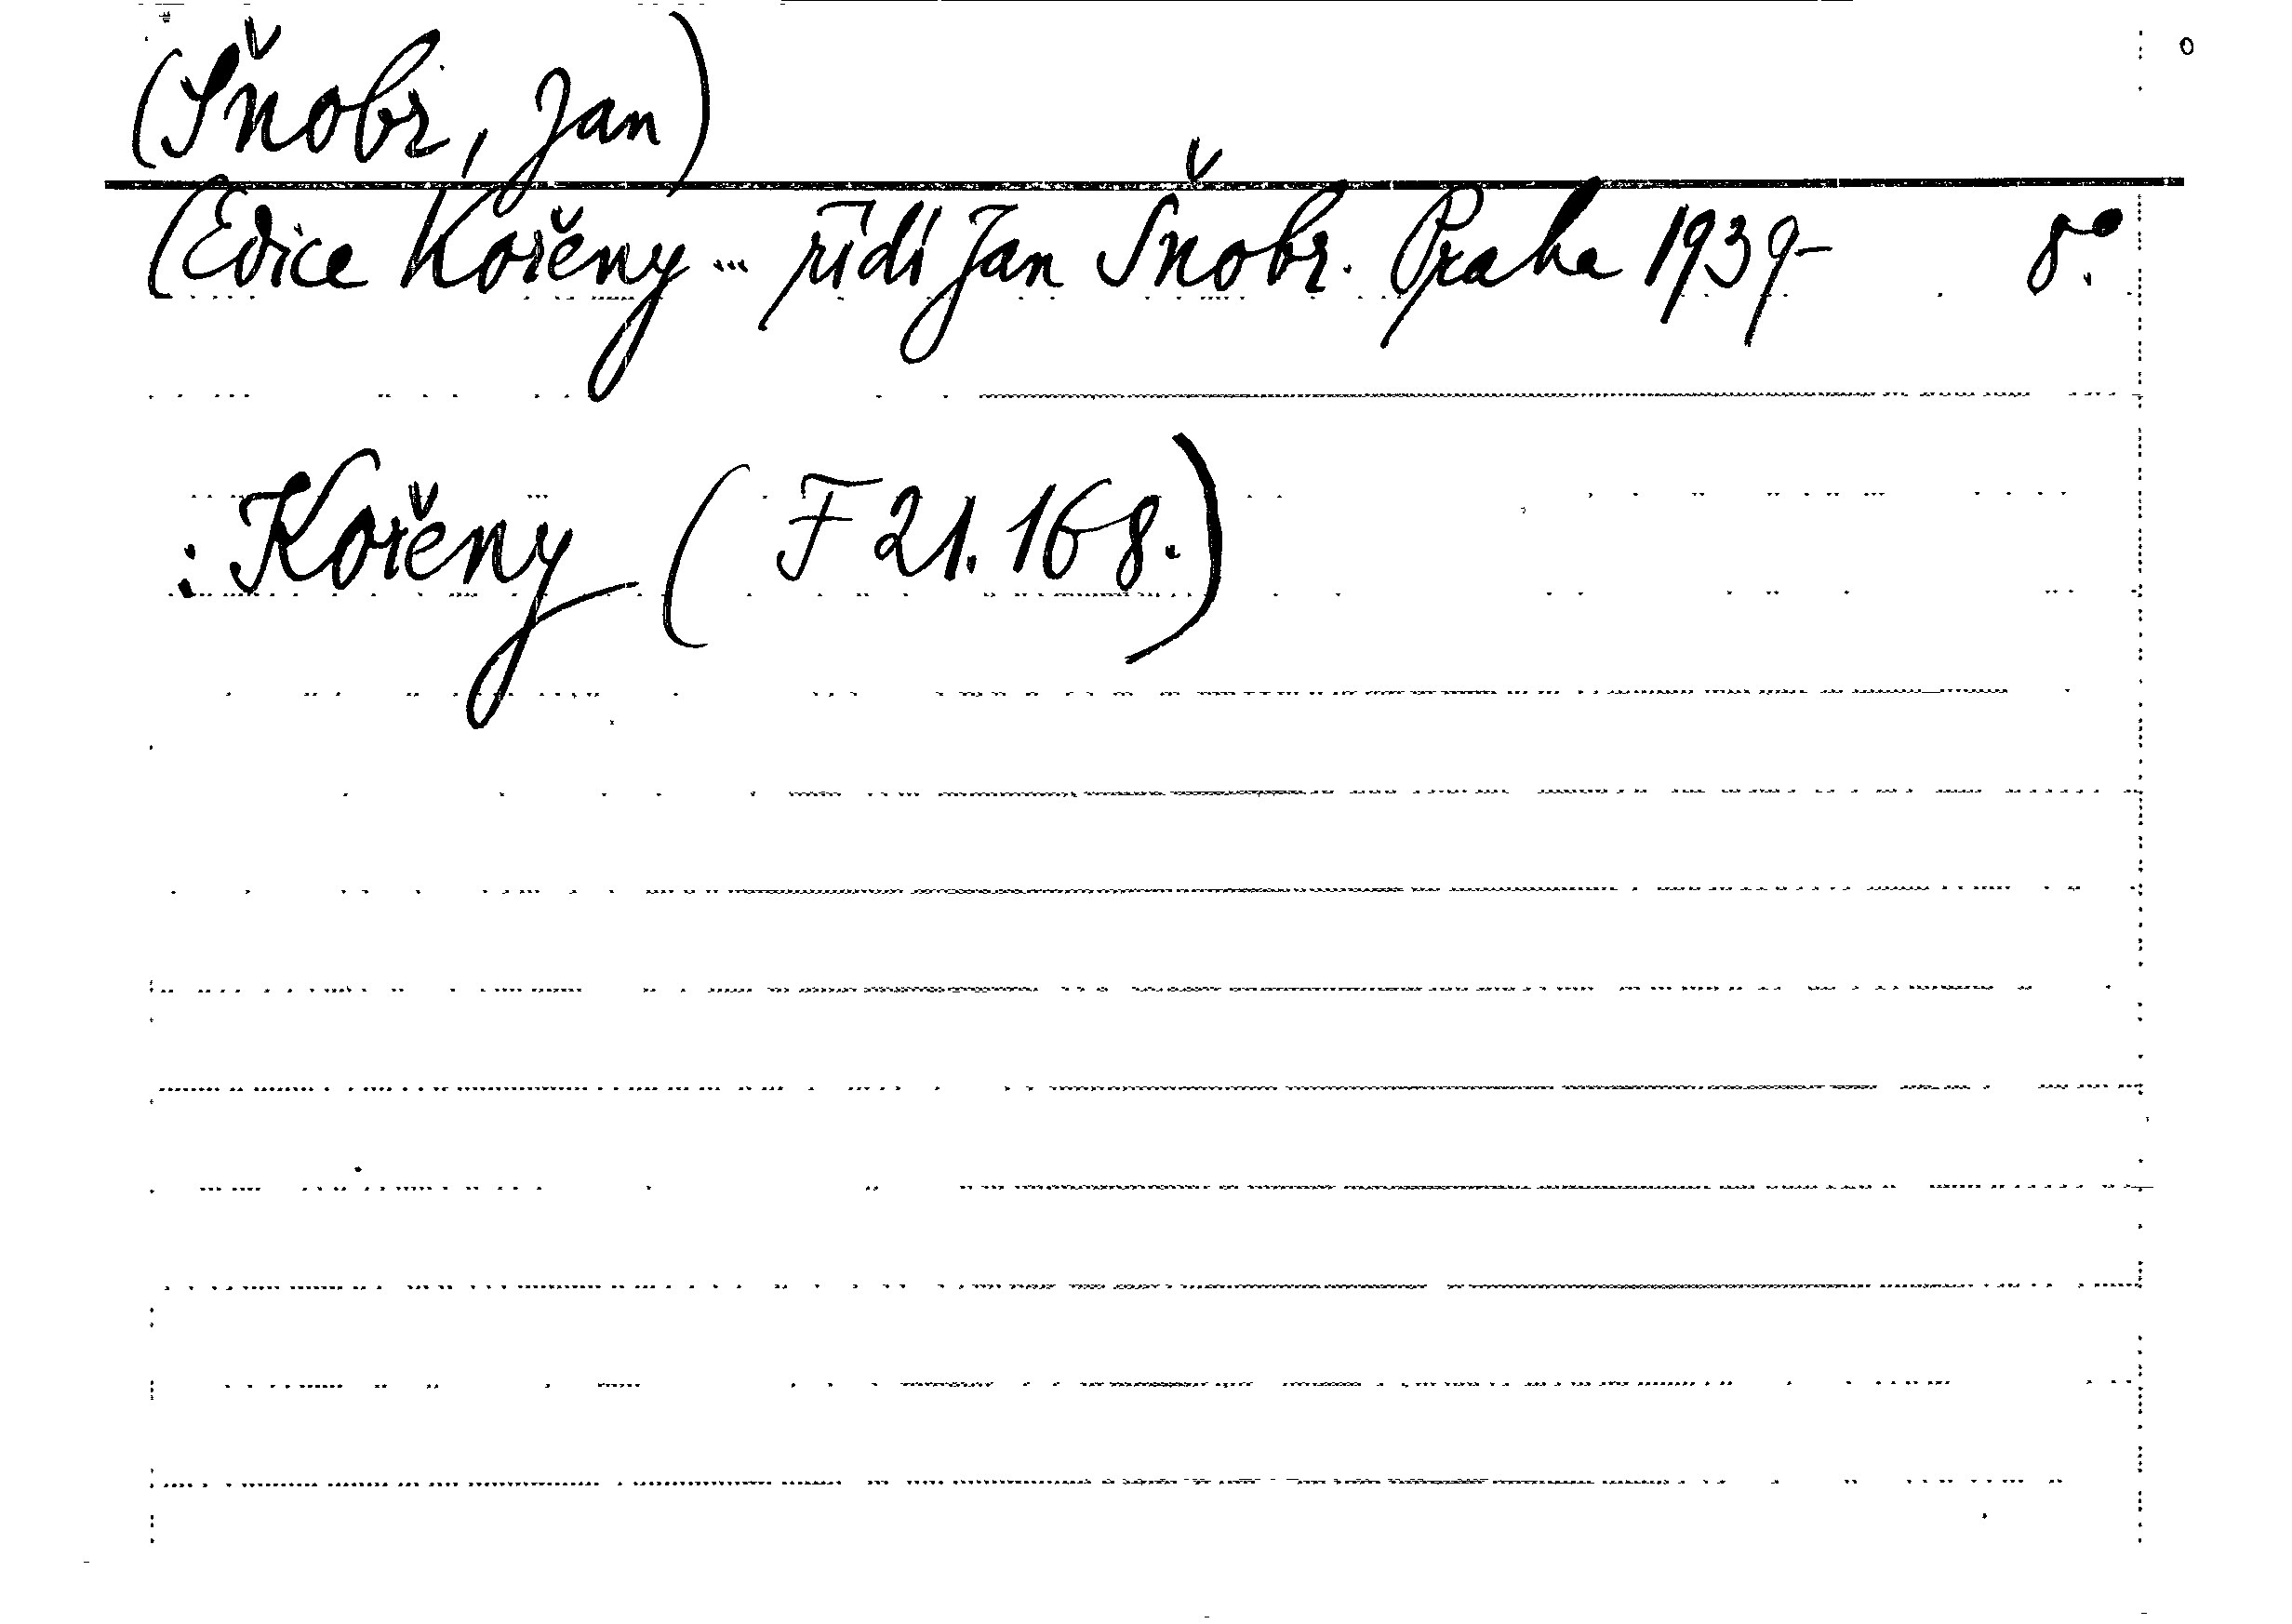 (Šnobr, Jan)
(Edice Kořeny ... řídí Jan Šnobr. Praha 1939- 8°.
: Kořeny ( F 21.168.)